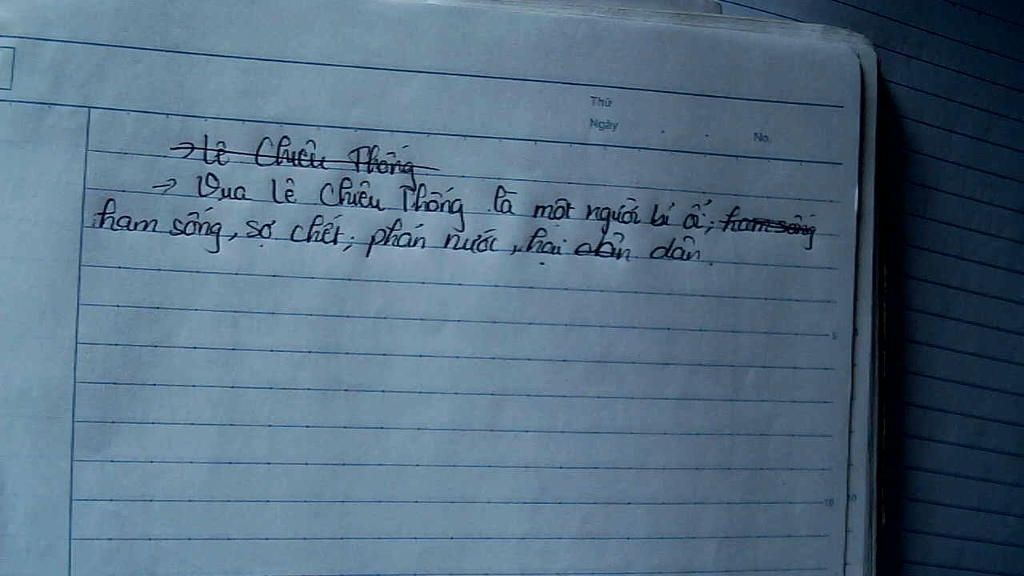 Thứ
Ngày . . No.
→ Lê Chiêu Thống
→ Vua Lê Chiêu Thống là một người bỉ ổi; ham sống
ham sống, sợ chết; phản nước, hại dân dân.
5
10